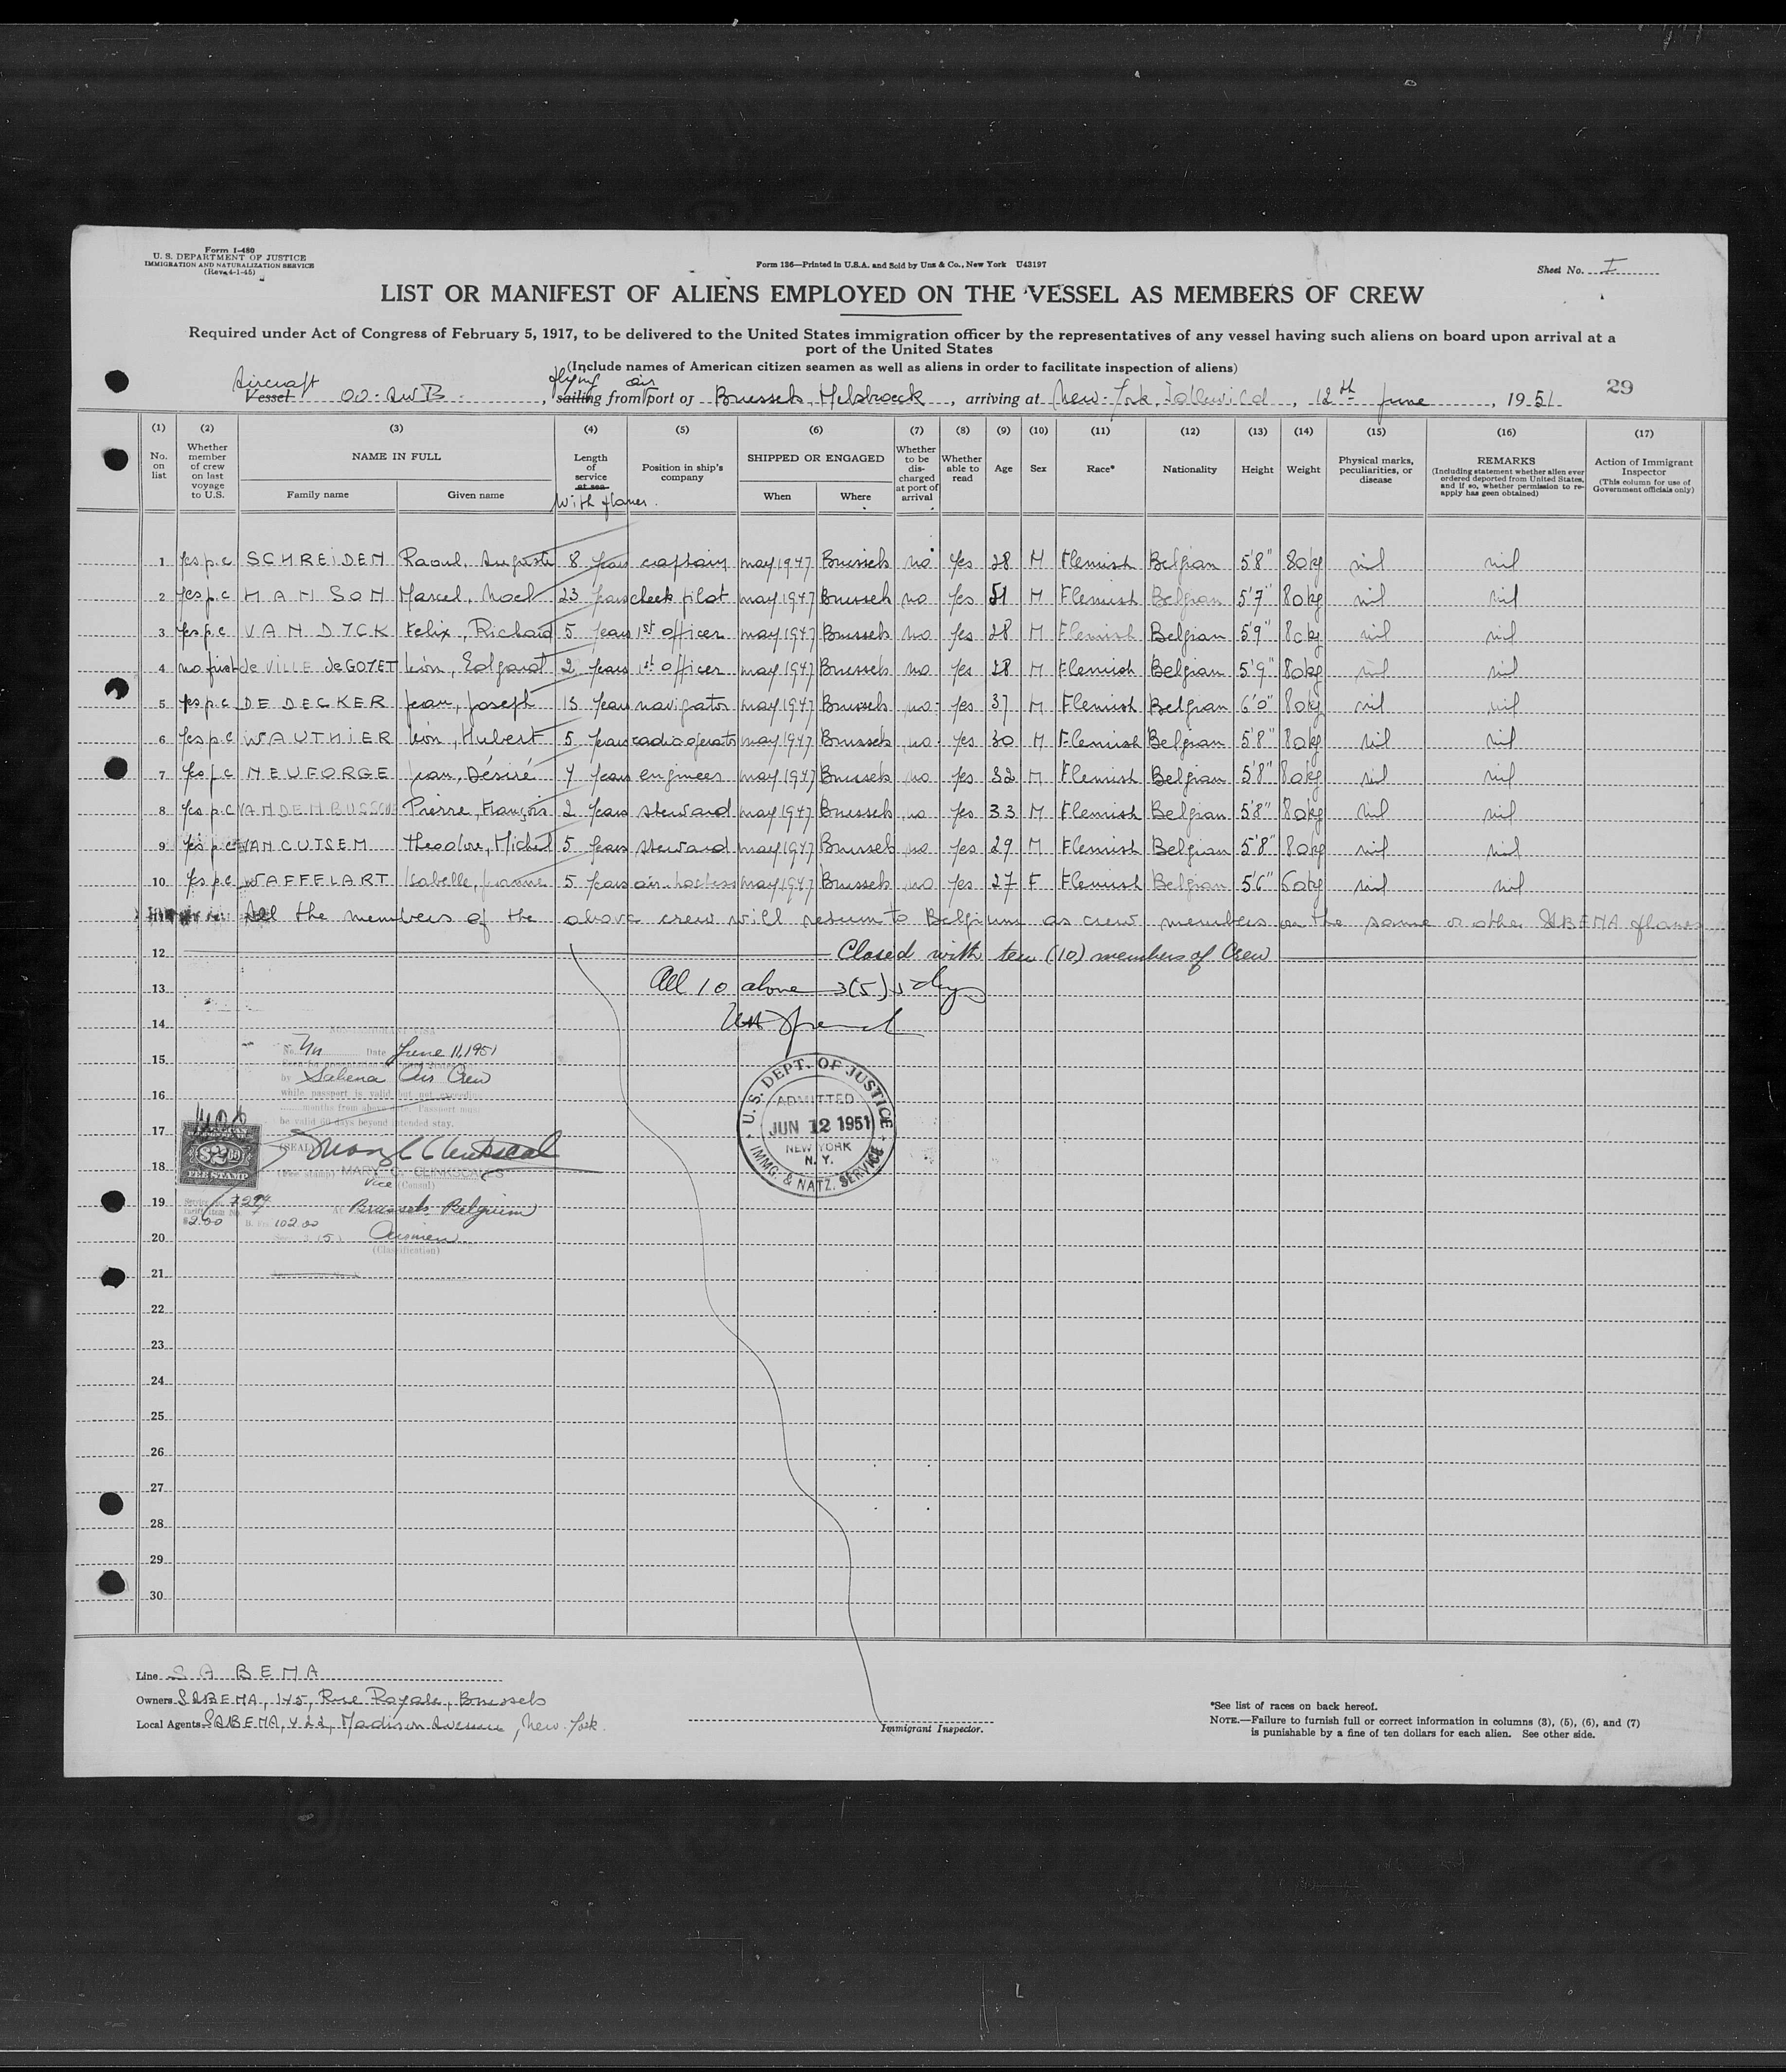 Form I-480
U. S. DEPARTMENT OF JUSTICE
IMMIGRATION AND NATURALIZATION SERVICE
(Rev. 4-1-45)
Form 136—Printed in U.S.A. and Sold by Unz & Co., New York U43197
Sheet No. I
LIST OR MANIFEST OF ALIENS EMPLOYED ON THE VESSEL AS MEMBERS OF CREW
Required under Act of Congress of February 5, 1917, to be delivered to the United States immigration officer by the representatives of any vessel having such aliens on board upon arrival at a
port of the United States
(Include names of American citizen seamen as well as aliens in order to facilitate inspection of aliens)
Aircraft flying air
Vessel OO-AWB, sailing from port of Brussels, Melsbroeck, arriving at New-York, Idlewild, 12th June, 1951
29
(1) (2) (3) (4) (5) (6) (7) (8) (9) (10) (11) (12) (13) (14) (15) (16) (17)
No. on list
Whether member of crew on last voyage to U.S.
NAME IN FULL
Family name Given name
Length of service at sea
With planes.
Position in ship's company
SHIPPED OR ENGAGED
When Where
Whether to be discharged at port of arrival
Whether able to read
Age Sex Race* Nationality Height Weight
Physical marks, peculiarities, or disease
REMARKS
(Including statement whether alien ever ordered deported from United States, and if so, whether permission to reapply has geen obtained)
Action of Immigrant Inspector
(This column for use of Government officials only)
1 Yes p.c SCHREIDEN Raoul, Auguste 8 years captain may 1947 Brussels no Yes 28 M Flemish Belgian 5'8" 80kg nil nil
2 Yes p.c HANSON Marcel, Noel 23 years check pilot may 1947 Brussels no Yes 51 M Flemish Belgian 5'7" 80kg nil nil
3 Yes p.c VAN DYCK Felix, Richard 5 years 1st officer may 1947 Brussels no Yes 28 M Flemish Belgian 5'9" 80kg nil nil
4 no first de VILLE de GOYET Léon, Edgard 2 years 1st officer may 1947 Brussels no Yes 28 M Flemish Belgian 5'9" 80kg nil nil
5 Yes p.c DE DECKER Jean, Joseph 15 years navigator may 1947 Brussels no Yes 37 M Flemish Belgian 6'0" 80kg nil nil
6 Yes p.c WAUTHIER Léon, Hubert 5 years radio operator may 1947 Brussels no Yes 30 M Flemish Belgian 5'8" 80kg nil nil
7 Yes p.c NEUFORGE Jean, Désiré 4 years engineer may 1947 Brussels no Yes 32 M Flemish Belgian 5'8" 80kg nil nil
8 Yes p.c VANDENBUSSCHE Pierre, François 2 years steward may 1947 Brussels no Yes 33 M Flemish Belgian 5'8" 80kg nil nil
9 Yes p.c VAN CUTSEM Theodore, Michel 5 years steward may 1947 Brussels no Yes 29 M Flemish Belgian 5'8" 80kg nil nil
10 Yes p.c WAFFELART Isabelle, Jeanne 5 years air-hostess may 1947 Brussels no Yes 27 F Flemish Belgian 5'6" 60kg nil nil
All the members of the above crew will return to Belgium as crew members on the same or other SABENA planes
12 Closed with ten (10) members of Crew
13 All 10 above 3(5)
14
NON-IMMIGRANT VISA
15 No. Date June 11, 1951
by Sabena Air Crew
16 while passport is valid but not exceeding
months from above date. Passport must
be valid 60 days beyond intended stay.
17 (SEAL)
$2.00
FEE STAMP
18 (Fee stamp) MARY C. CLINKSCALES
Vice (Consul)
19 Service No. 7297
Tariff Item No. 7
At Brussels, Belgium
$2.00 B. Frs. 102.00
20 Sec. 3 (5) Airmen
(Classification)
U. S. DEPT. OF JUSTICE
ADMITTED
JUN 12 1951
NEW YORK
N. Y.
IMMG. & NATZ. SERVICE
21
22
23
24
25
26
27
28
29
30
Line SABENA
Owners SABENA, 145, Rue Royale, Brussels
Local Agents SABENA, 422, Madison Avenue, New-York.
Immigrant Inspector.
*See list of races on back hereof.
NOTE.—Failure to furnish full or correct information in columns (3), (5), (6), and (7)
is punishable by a fine of ten dollars for each alien. See other side.